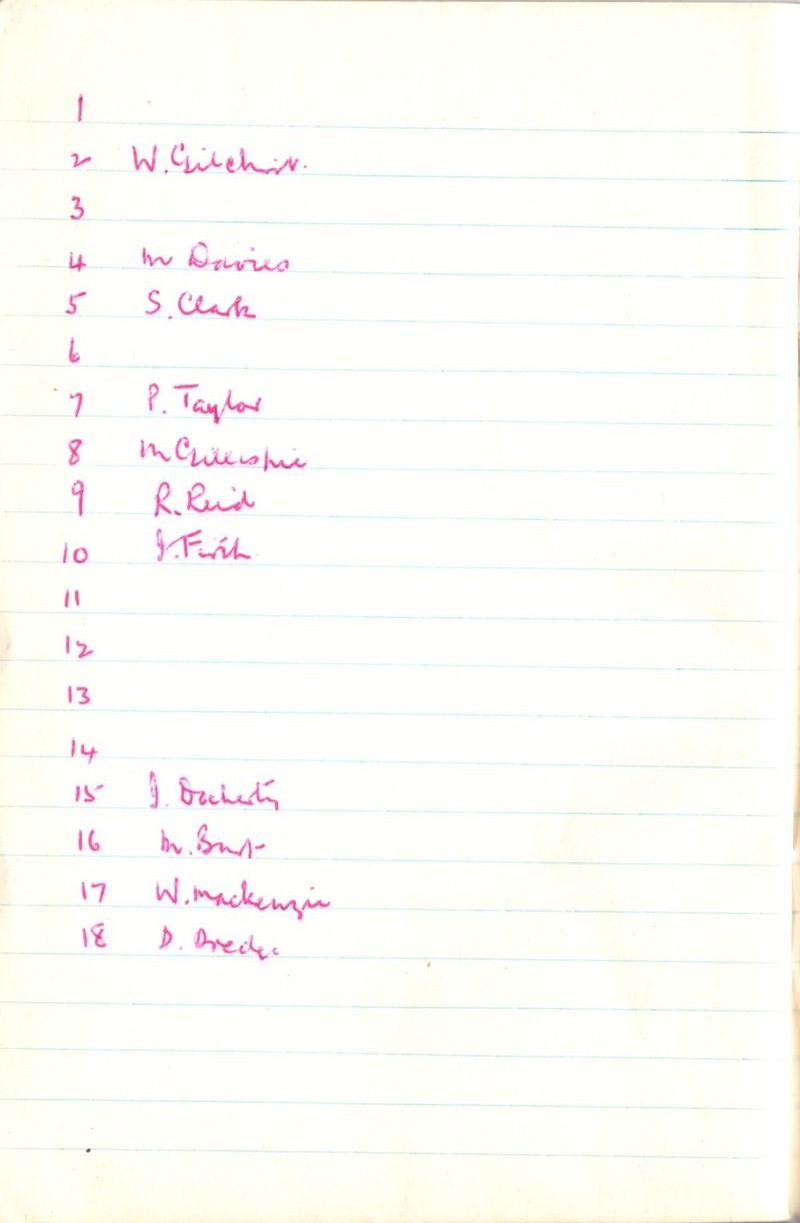 1
2 W. Gilchrist.
3
4 M Davies
5 S. Clark
6
7 P. Taylor
8 M Gillespie
9 R. Reid
10 J. Firth
11
12
13
14
15 J. Docherty
16 M. Burt
17 W. Mackenzie
18 D. Dredge